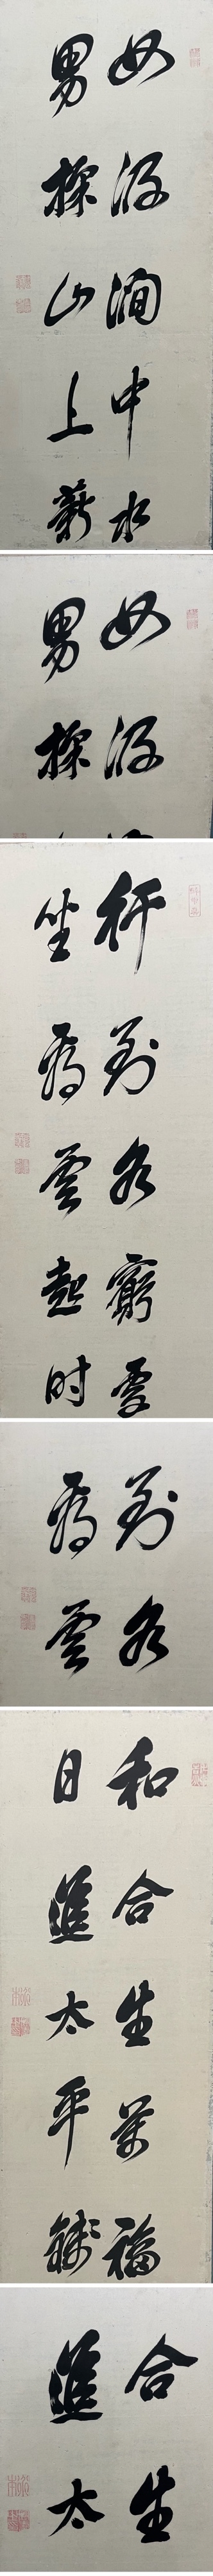 女汲澗中水
男採山上薪
女汲
男採
行到水窮處
坐看雲起時
到水
看雲
和合生萬福
日進太平錢
合生
進太